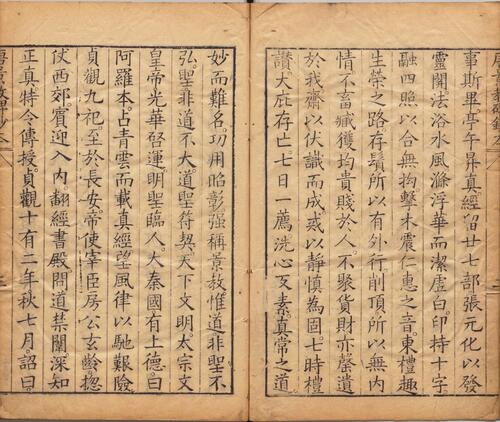 事斯畢。亭午昇真。經留廿七部。張元化以發
靈關。法浴水風。滌浮華而潔虛白。印持十字。
融四照以合無拘。擊木震仁惠之音。東禮趣
生榮之路。存鬚所以有外行。削頂所以無內
情。不畜臧獲。均貴賤於人。不聚貨財。示罄遺
於我。齋以伏識而成。戒以靜慎為固。七時禮
讃。大庇存亡。七日一薦。洗心反素。真常之道。
妙而難名。功用昭彰。強稱景教。惟道非聖不
弘。聖非道不大。道聖符契。天下文明。太宗文
皇帝。光華啓運。明聖臨人。大秦國有上德。曰
阿羅本。占青雲而載真經。望風律以馳艱險。
貞觀九祀。至於長安。帝使宰臣房公玄齡。揔
仗西郊。賓迎入內。翻經書殿。問道禁闈。深知
正真。特令傳授。貞觀十有二年秋七月。詔曰。